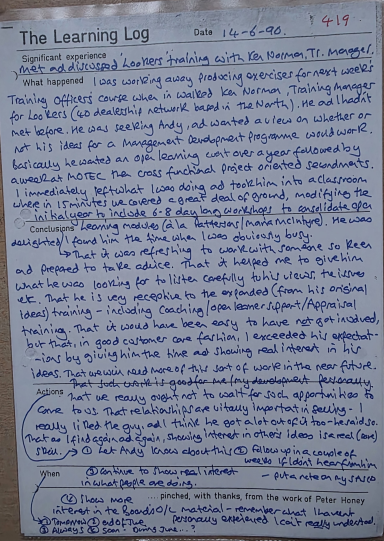 419
The Learning Log
Date 14-6-90.
Significant experience
Met and discussed 'Lookers' training with Ken Norman, Tr. Manager.
What happened I was working away producing exercises for next weeks
Training Officers' course when in walked Ken Norman, Training Manager
for Lookers (40 dealership network based in the North). He and I hadn't
met before. He was seeking Andy, and wanted a view on whether or
not his ideas for a Management Development programme would work.
Basically he wanted an open learning cont over a year followed by
a week at MOTEC then cross functional project oriented secondments.
I immediately left what I was doing and took him into a classroom
where in 15 minutes we covered a great deal of ground, modifying the
initial year to include 6-8 day long workshops to consolidate open
Conclusions learning modules (a la Patterson/Maria McIntyre). He was
delighted I found him the time when I was obviously busy.
→ That it was refreshing to work with someone so keen
and prepared to take advice. That it helped me to give him
what he was looking for to listen carefully to his views, the issues
etc. That he is very receptive to the expanded (from his original
ideas) training - including Coaching/open learner support/Appraisal
training. That it would have been easy to have not got involved,
but that, in good customer care fashion, I exceeded his expectat-
-ions by giving him the time and showing real interest in his
ideas. That we will need more of this sort of work in the near future.
That such work is good for me/my development personally.
Actions That we really ought not to wait for such opportunities to
come to us. That relationships are vitally important in selling - I
really liked the guy, and I think he got a lot out of it too - he said so.
That as I find again and again, showing interest in others ideas is a real (core)
skill. → ① Let Andy know about this ② Follow up in a couple of
weeks if I don't hear from him
When ③ Continue to show real interest - put a note on my
in what people are doing.
④ Show more ....pinched, with thanks, from the work of Peter Honey
interest in the Boards O/L material - remember what I haven't
① Tomorrow ② End of June personally experienced I can't really understand.
③ Always ④ Soon - During June...?